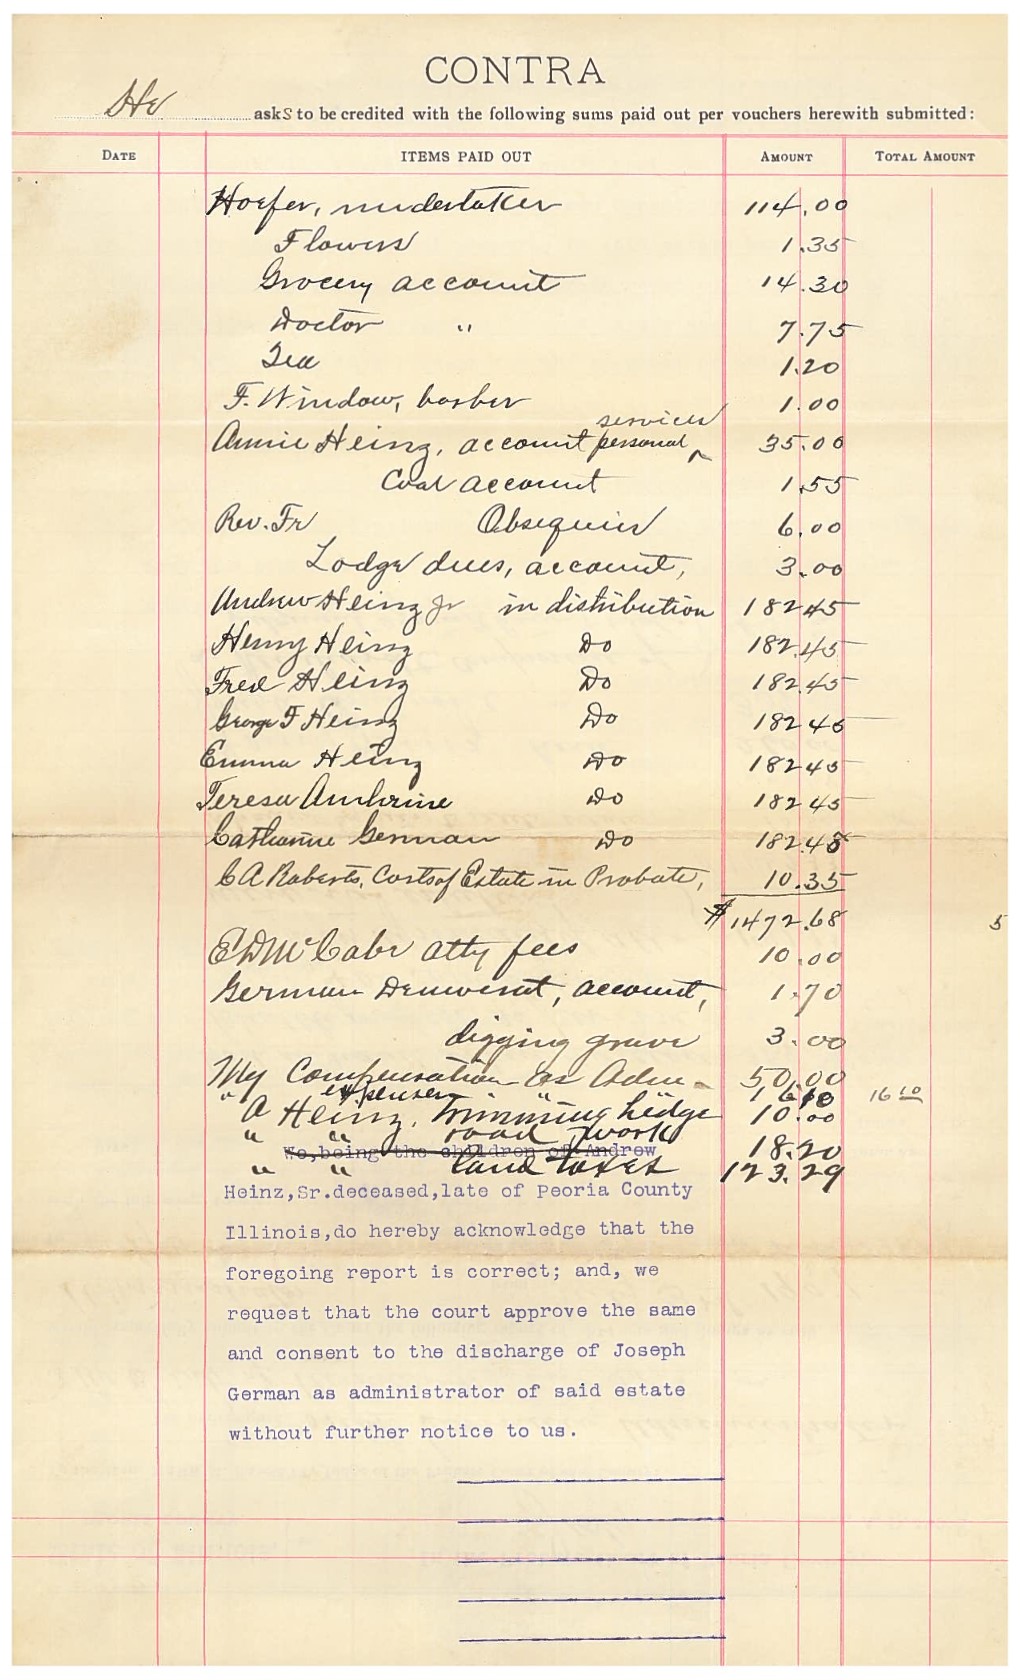 CONTRA
He asks to be credited with the following sums paid out per vouchers herewith submitted:
DATE ITEMS PAID OUT AMOUNT TOTAL AMOUNT
Hoefer, undertaker 114.00
Flowers 1.35
Grocery account 14.30
Doctor " 7.75
Tea 1.20
F. Window, barber 1.00
services
Annie Heinz, account personal ^ 35.00
Coal account 1.55
Rev. Fr Obsequies 6.00
Lodge dues, account, 3.00
Andrew Heinz Jr in distribution 182.45
Henry Heinz Do 182.45
Fred Heinz Do 182.45
George F Heinz Do 182.45
Emma Heinz Do 182.45
Teresa Ambrine Do 182.45
Catharine German Do 182.45
C A Roberts, Costs of Estate in Probate, 10.35
$1472.68 5
E D McCabe atty fees 10.00
German Democrat, account, 1.70
digging grave 3.00
My Compensation as Adm- 50.00
" expenses " 16 10
A Heinz, trimming hedge 10.00
" " road work 18.20
We, being the children of Andrew
" " land taxes 123.29
Heinz,Sr.deceased,late of Peoria County
Illinois,do hereby acknowledge that the
foregoing report is correct; and, we
request that the court approve the same
and consent to the discharge of Joseph
German as administrator of said estate
without further notice to us.